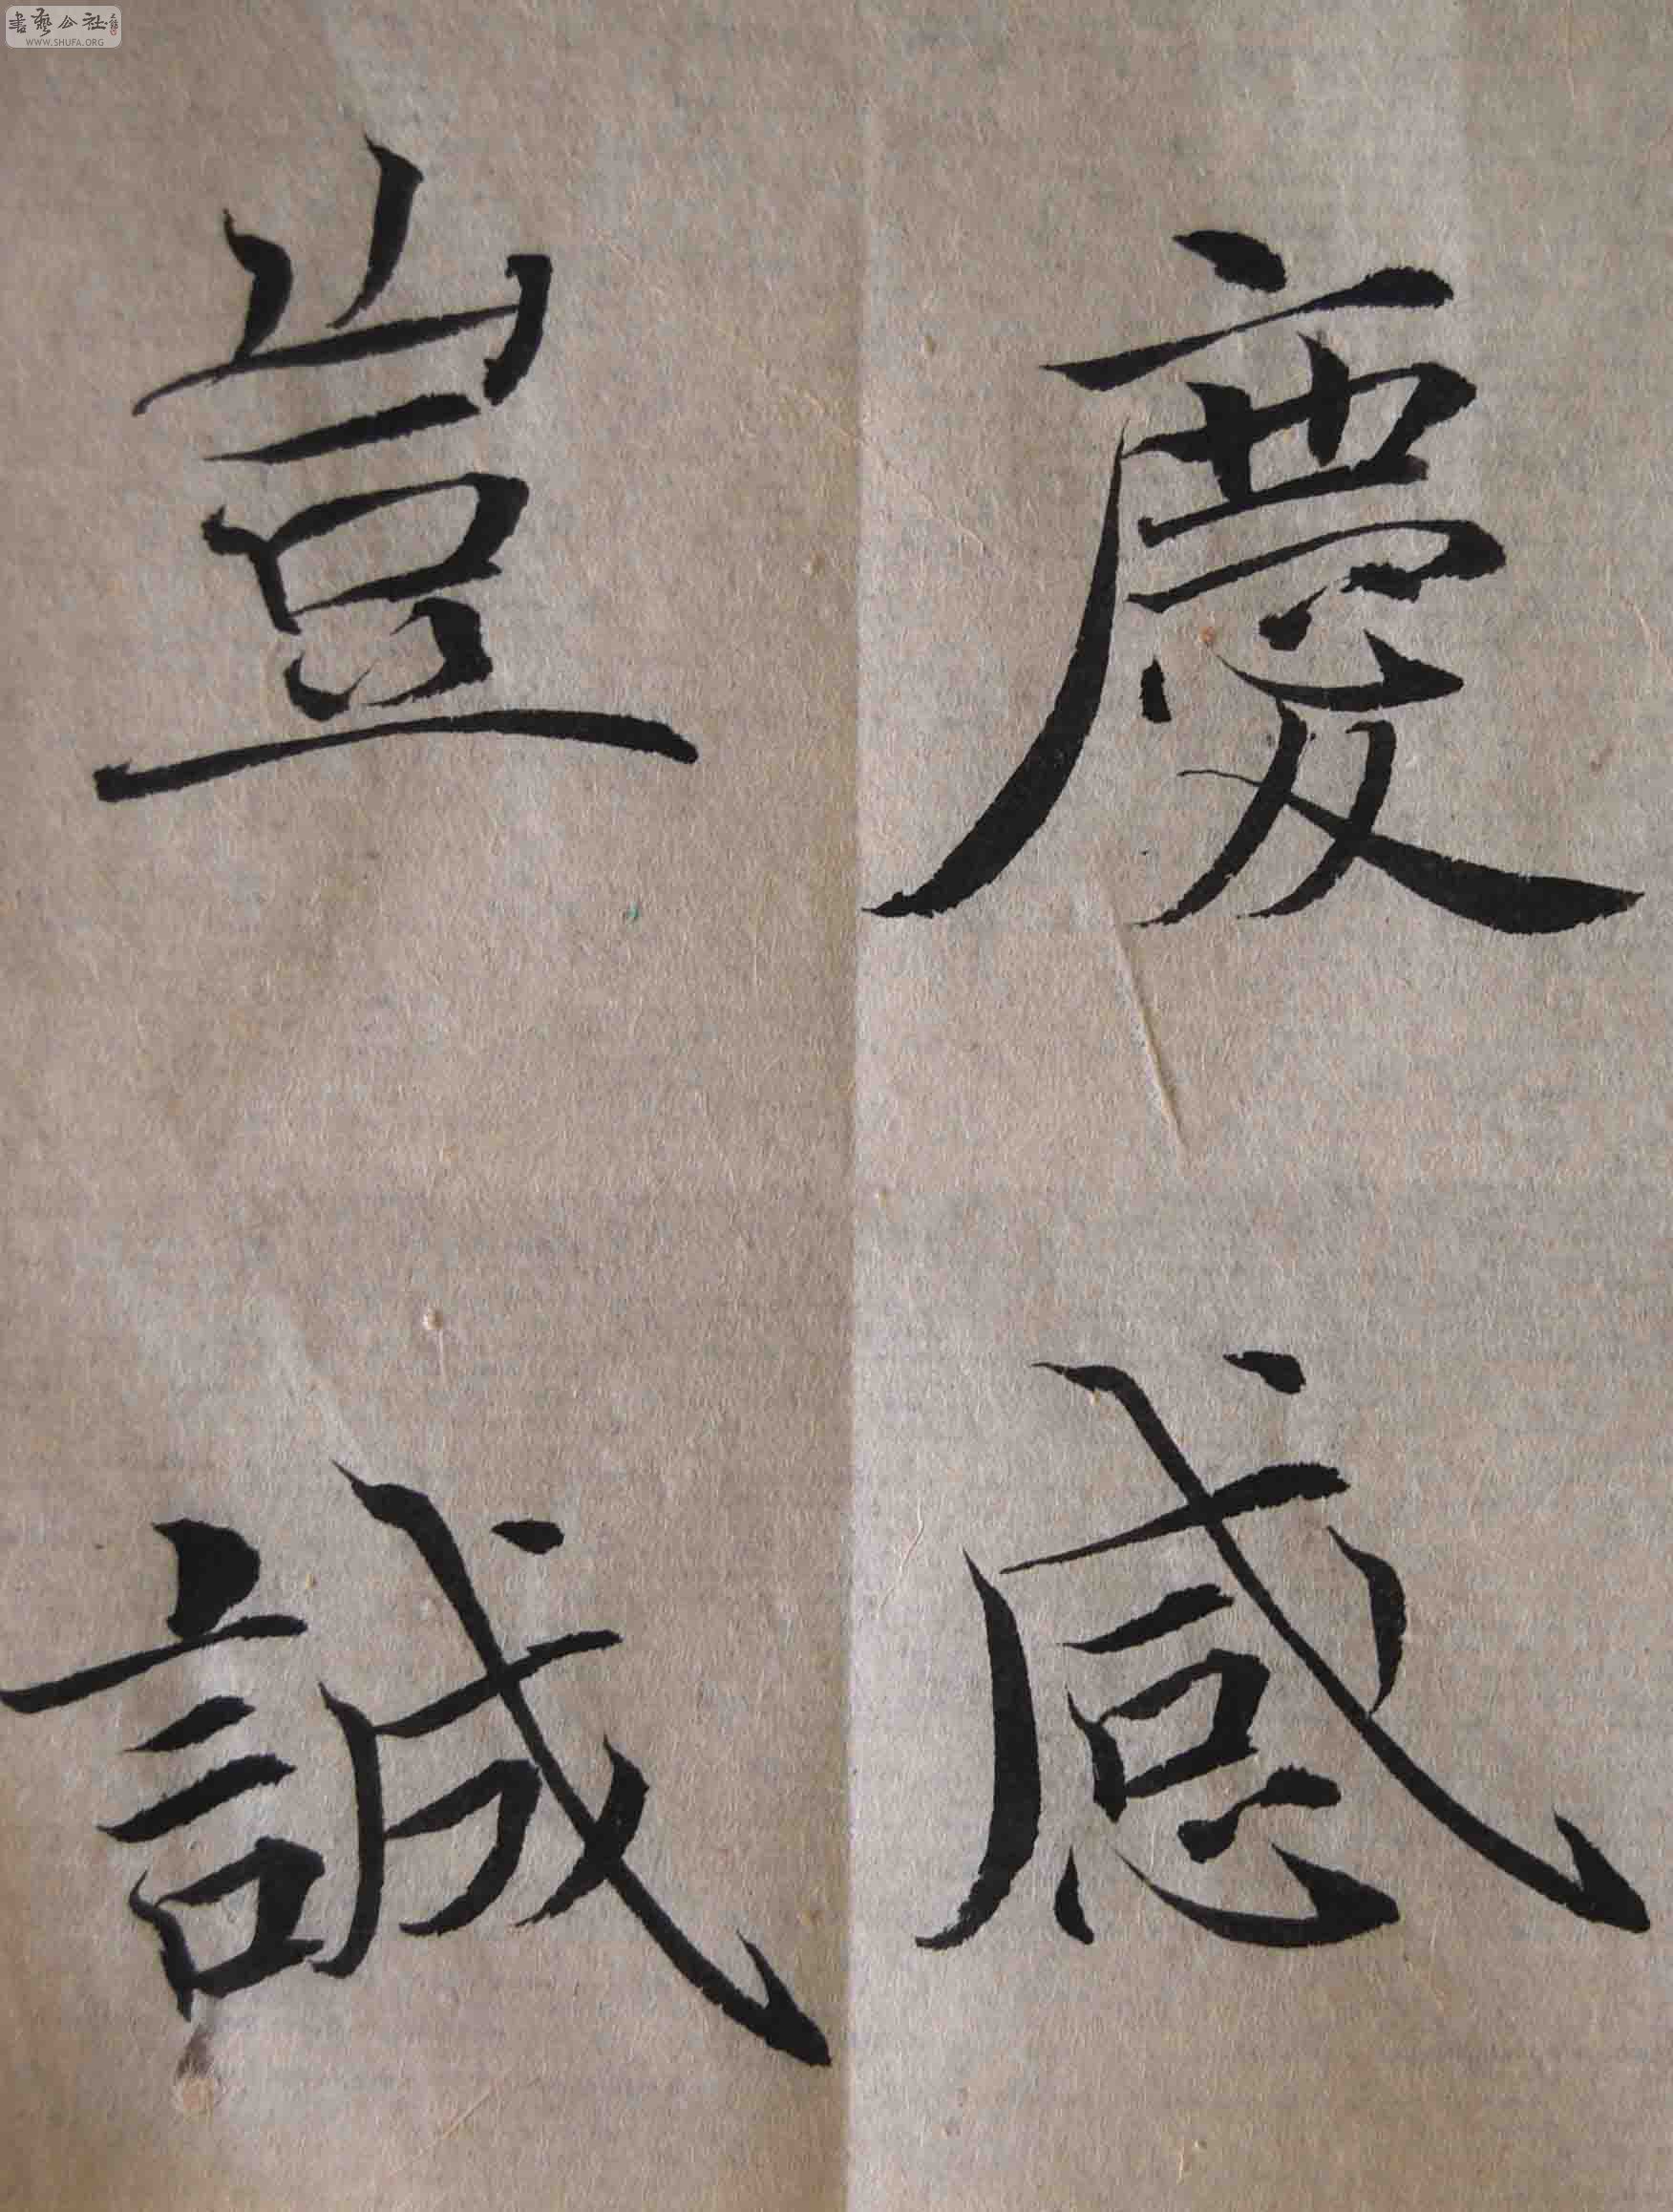 慶感
豈誠
書藝公社
WWW.SHUFA.ORG